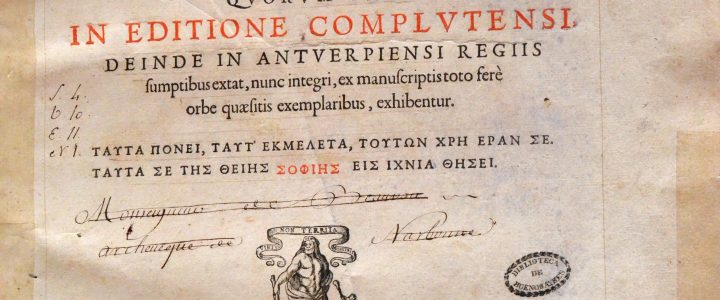 QVORVM
IN EDITIONE COMPLVTENSI
DEINDE IN ANTVERPIENSI REGIIS
sumptibus extat, nunc integri, ex manuscriptis toto ferè
orbe quæsitis exemplaribus, exhibentur.
S. 4.
b 10.
E. 11.
ΤΑΥΤΑ ΠΟΝΕΙ, ΤΑΥΤ' ΕΚΜΕΛΕΤΑ, ΤΟΥΤΩΝ ΧΡΗ ΕΡΑΝ ΣΕ.
ΤΑΥΤΑ ΣΕ ΤΗΣ ΘΕΙΗΣ ΣΟΦΙΗΣ ΕΙΣ ΙΧΝΙΑ ΘΗΣΕΙ.
Monseigneur de
archeuesque de Narbonne
NON TERRITA
BIBLIOTECA
DE
BUENOS AIRES